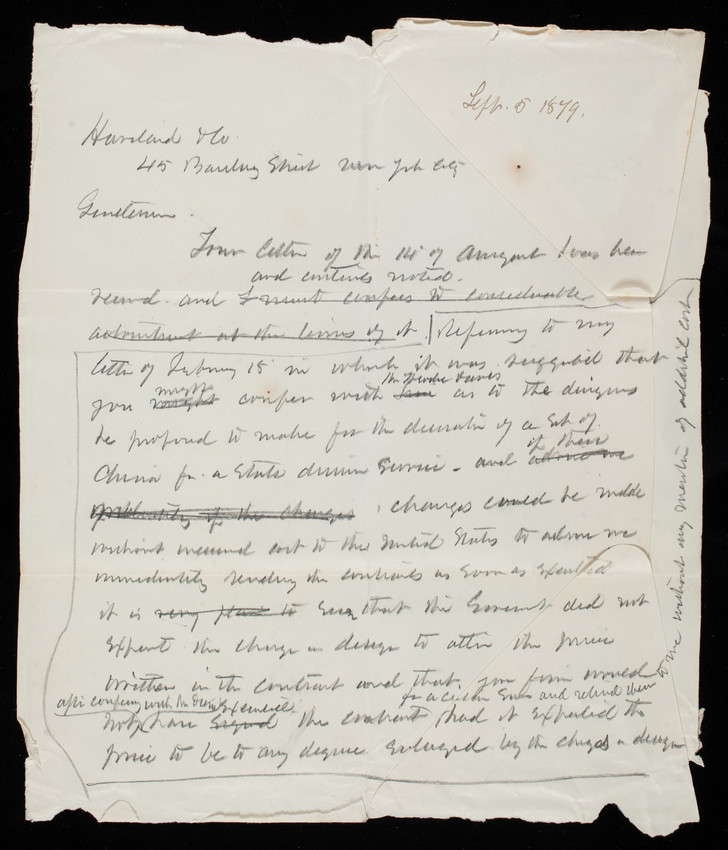 Sept. 5 1879.
Haviland & Co.
45 Barclay Street New York City
Gentlemen.
Your letter of the of August has been
and contents noted.
received. and I must confess to considerable
astonishment at the of it. Referring to my
letter of February 15 in which it was suggested that
might Mr Theodore Davis
you might confer with him as to the designs
he proposed to make for the decoration of a set of
of these
China for a State dinner Service - and advise me
of the changes changes could be made
without increased cost to the United States to advise me
immediately sending the contracts as soon as executed
it is very plain to see, that the Government did not
expect the change in design to alter the price
written in the contract and that your firm would
after conferring with Mr Executed for a certain sum and returned them
not have signed the contract had it expected the
price to be to any degree enlarged by the change in design
to me without any mention of additional cost